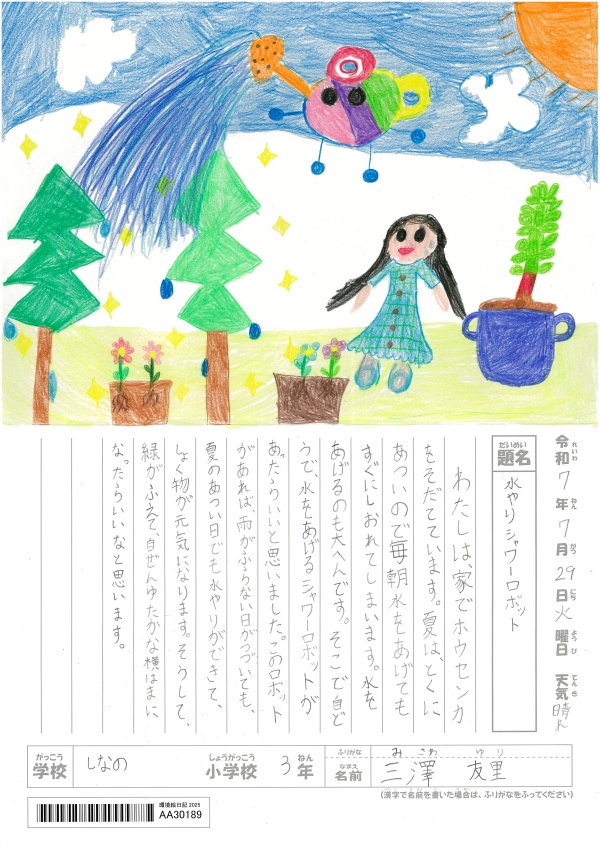 令和7年7月29日火曜日 天気晴れ
れいわ ねん がつ にち ようび てんき
だいめい
題名 水やりシャワーロボット
わたしは、家でホウセンカ
をそだてています。夏は、とくに
あついので毎朝水をあげても
すぐにしおれてしまいます。水を
あげるのも大へんです。そこで自ど
うで、水をあげるシャワーロボットが
あったらいいと思いました。このロボット
があれば、雨がふらない日がつづいても、
夏のあつい日でも水やりができて、
しょく物が元気になります。そうして、
緑がふえて、自ぜんゆたかな横はまに
なったらいいなと思います。
がっこう しょうがっこう ねん ふりがな みさわ ゆり
学校 しなの 小学校 3年 なまえ 名前 三澤 友里
(漢字で名前を書いた場合は、ふりがなをふってください)
環境絵日記 2025
AA30189